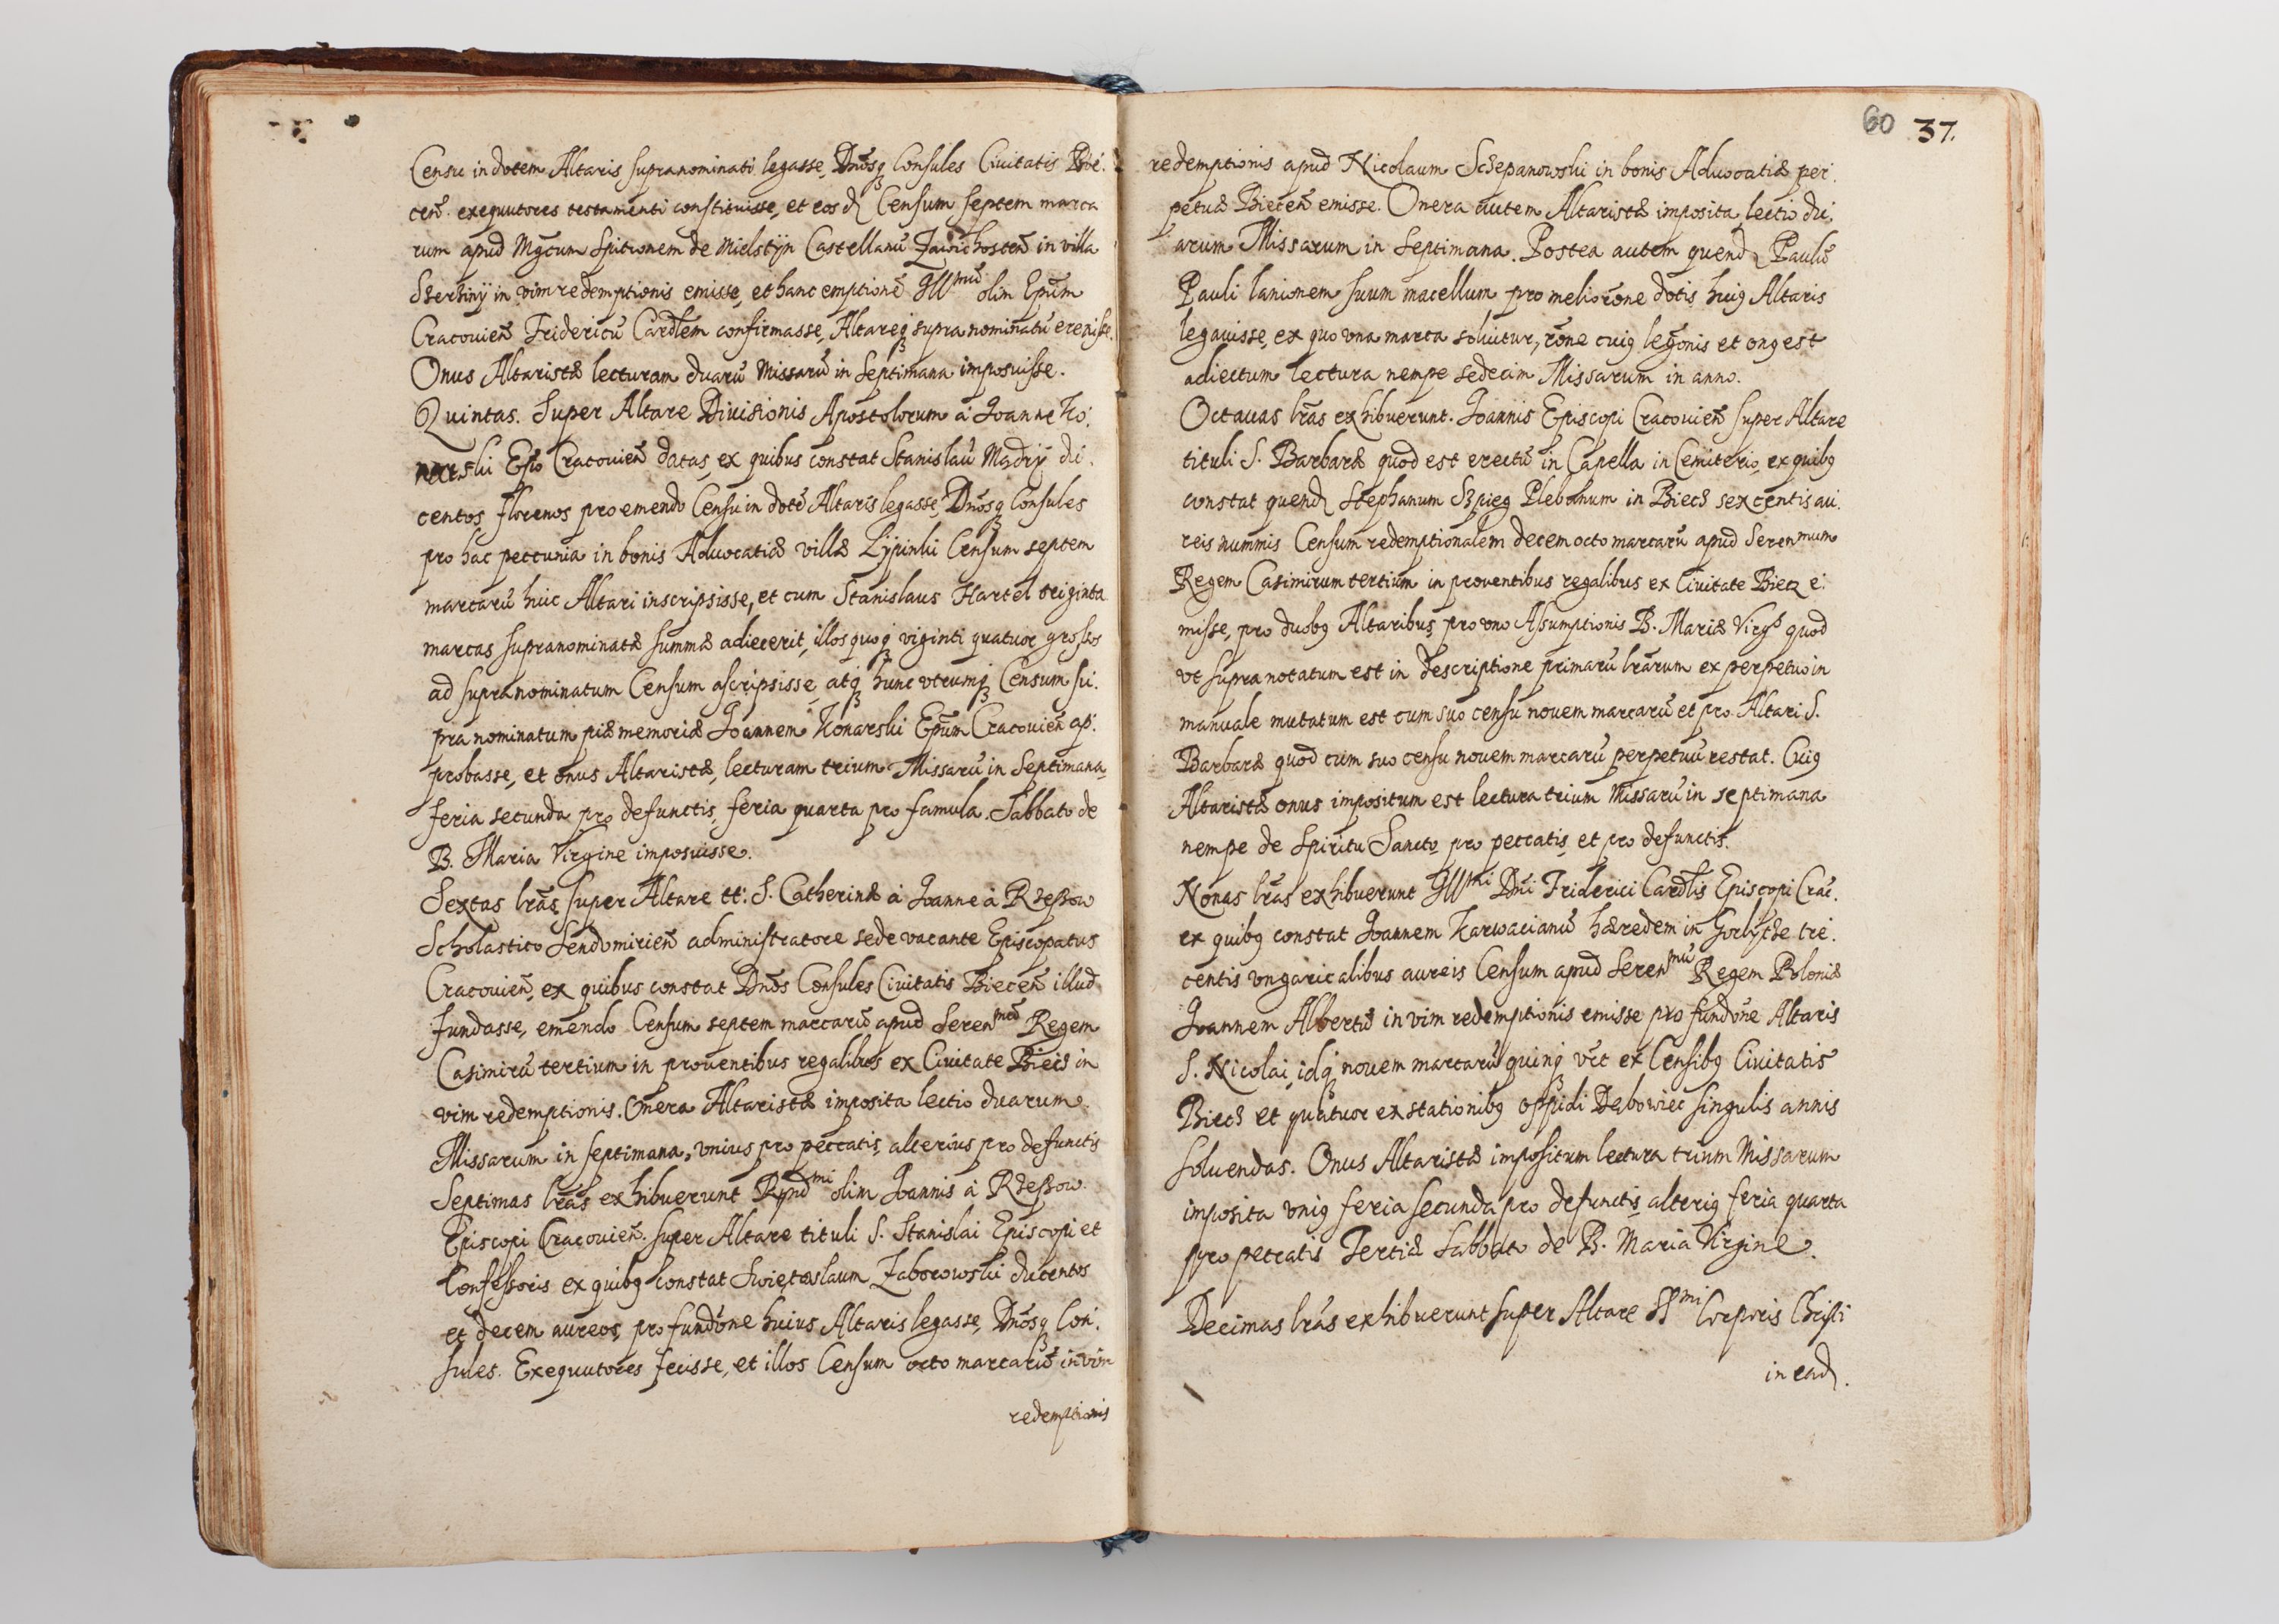 Censu in dotem Altaris supranominati legasse, Dnōsq Consules Ciuitatis Bie:
cen̄. exequutores testamenti constituisse, et eosd Censum septem marca
rum apud Mgcum Spitionem de Mielstijn Castellanū Zawichosten̄ in villa
Szerzinÿ in vim redemptionis emisse, et hanc emptionē Illmū olim Epūm
Cracouien̄ Fridericū Cardlem confirmasse, Altareq supra nominatū erexisse.
Onus Altaristæ lecturam duarū Missarū in Septimana imposuisse.
Quintas. Super Altare Diuisionis Apostolorum à Joanne Ko:
narski Epō Cracouien̄ datas, ex quibus constat Stanislaū Madrÿ du:
centos florenos pro emendo Censu in dotē Altaris legasse, Dnōsq Consules
pro hac peccunia in bonis Aduocatiæ villæ Lÿpinki Censum septem
marcarū huic Altari inscripsisse, et cum Stanislaus Hartel triginta
marcas supranominatæ summæ adiecerit, illos quoq viginti quatuor grossos
ad supranominatum Censum ascripsisse, atq hunc vtrumq Censum su:
pra nominatum piæ memoriæ Joannem Konarski Epūm Cracouien̄ ap:
probasse, et onus Altaristæ, lecturam trium Missarū in Septimana
feria secunda pro defunctis, feria quarta pro famula. Sabbato de
B. Maria Virgine imposuisse.
Sextas lrās, super Altare tt: S. Catherinæ à Joanne à Rzessow
Scholastico Sendomirien̄ administratore sede vacante Episcopatus
Cracouien̄, ex quibus constat Dnōs Consules Ciuitatis Biecen̄ illud
fundasse, emendo Censum septem marcarū apud Serenmū Regem
Casimirū tertium in prouentibus regalibus ex Ciuitate Biecz in
vim redemptionis. Onera Altaristæ imposita lectio duarum
Missarum in septimana, vnius pro peccatis, alterius pro defunctis
Septimas lrās exhibuerunt Rṇdmi olim Joannis à Rzessow
Episcopi Cracouien̄. super Altare tituli S. Stanislai Episcopi et
Confessoris ex quibq constat Swiętoslaum Zaborowski ducentos
et decem aureos, pro fundōne huius Altaris legasse, Dnōsq Con:
sules. Exequutores fecisse, et illos Censum octo marcarū in vim
redemptionis
60 37.
redemptionis apud Nicolaum Sczepanowski in bonis Aduocatiæ per:
petuæ Biecen̄ emisse. Onera autem Altaristæ imposita lectio du:
arum Missarum in Septimana. Postea autem quend Paulū
Pauli lanionem suum macellum pro meliorōne dotis huiq Altaris
legauisse, ex quo vna marca soluitur, rōne cuiq legōnis et onq est
adiectum lectura nempe sedecim Missarum in anno.
Octauas lrās exhibuerunt. Joannis Episcopi Cracouien̄ super Altare
tituli S. Barbaræ quod est erectū in Capella in Cemiterio, ex quibq
constat quend Stephanum Szpieg Plebanum in Biecz sexcentis au:
reis nummis Censum redemptionalem decem octo marcarū apud Serenmum
Regem Casimirum tertium in prouentibus regalibus ex Ciuitate Biecz e:
misse, pro duobq Altaribus, pro vno Assumptionis B. Mariæ Virgs quod
vt supra notatum est in descriptione primarū lrārum ex perpetuo in
manuale mutatum est cum suo censu nouem marcarū et pro Altari S.
Barbaræ quod cum suo censu nouem marcarū perpetuū restat. Cuiq
Altaristæ onus impositum est lectura trium Missarū in septimana
nempe de Spiritu Sancto, pro peccatis, et pro defunctis.
Nonas lrās exhibuerunt Illmi Dni Friderici Cardlis Episcopi Crac.
ex quibq constat Joannem Karwacianū hæredem in Gorlÿcze tre:
centis vngaricalibus aureis Censum apud Serenmū Regem Poloniæ
Joannem Albertū in vim redemptionis emisse pro fundōne Altaris
S. Nicolai, idq nouem marcarū quinq vct ex Censibq Ciuitatis
Biecz et quatuor ex stationibq oppidi Dębowiec singulis annis
soluendas. Onus Altaristæ impositum lectura trium Missarum
imposita vniq feria secunda pro defunctis, alteriq feria quarta
pro peccatis Tertiæ Sabbato de B. Maria Virgine.
Decimas lrās exhibuerunt super Altare SSmi Corporis Christi
in ead.